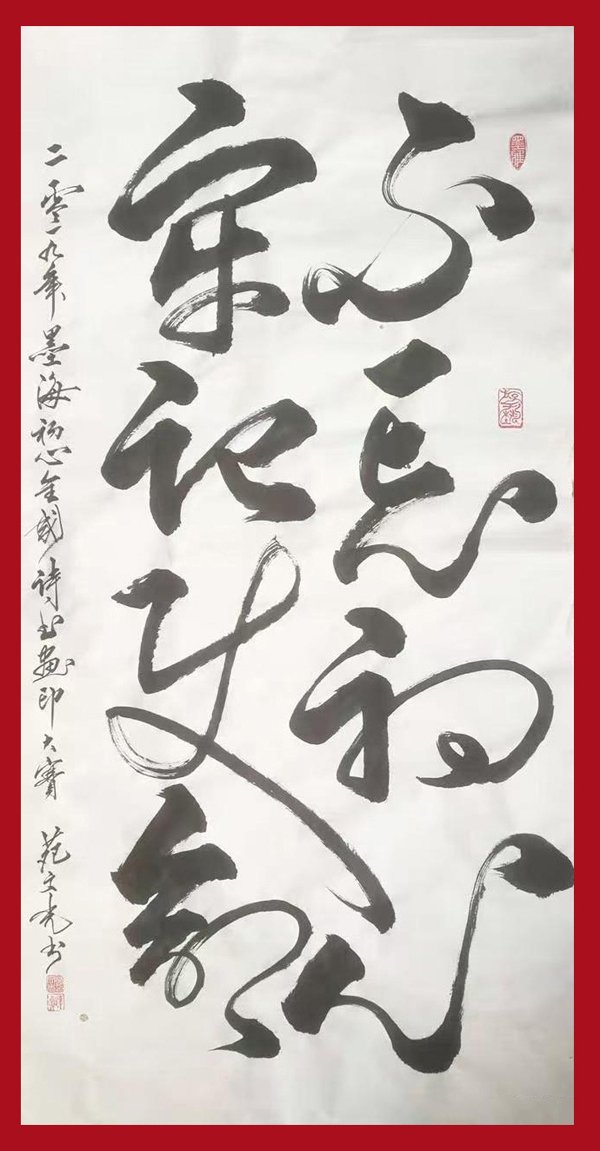 不忘初心
牢记使命
二零一九年墨海初心全国诗书画印大赛 范文光书